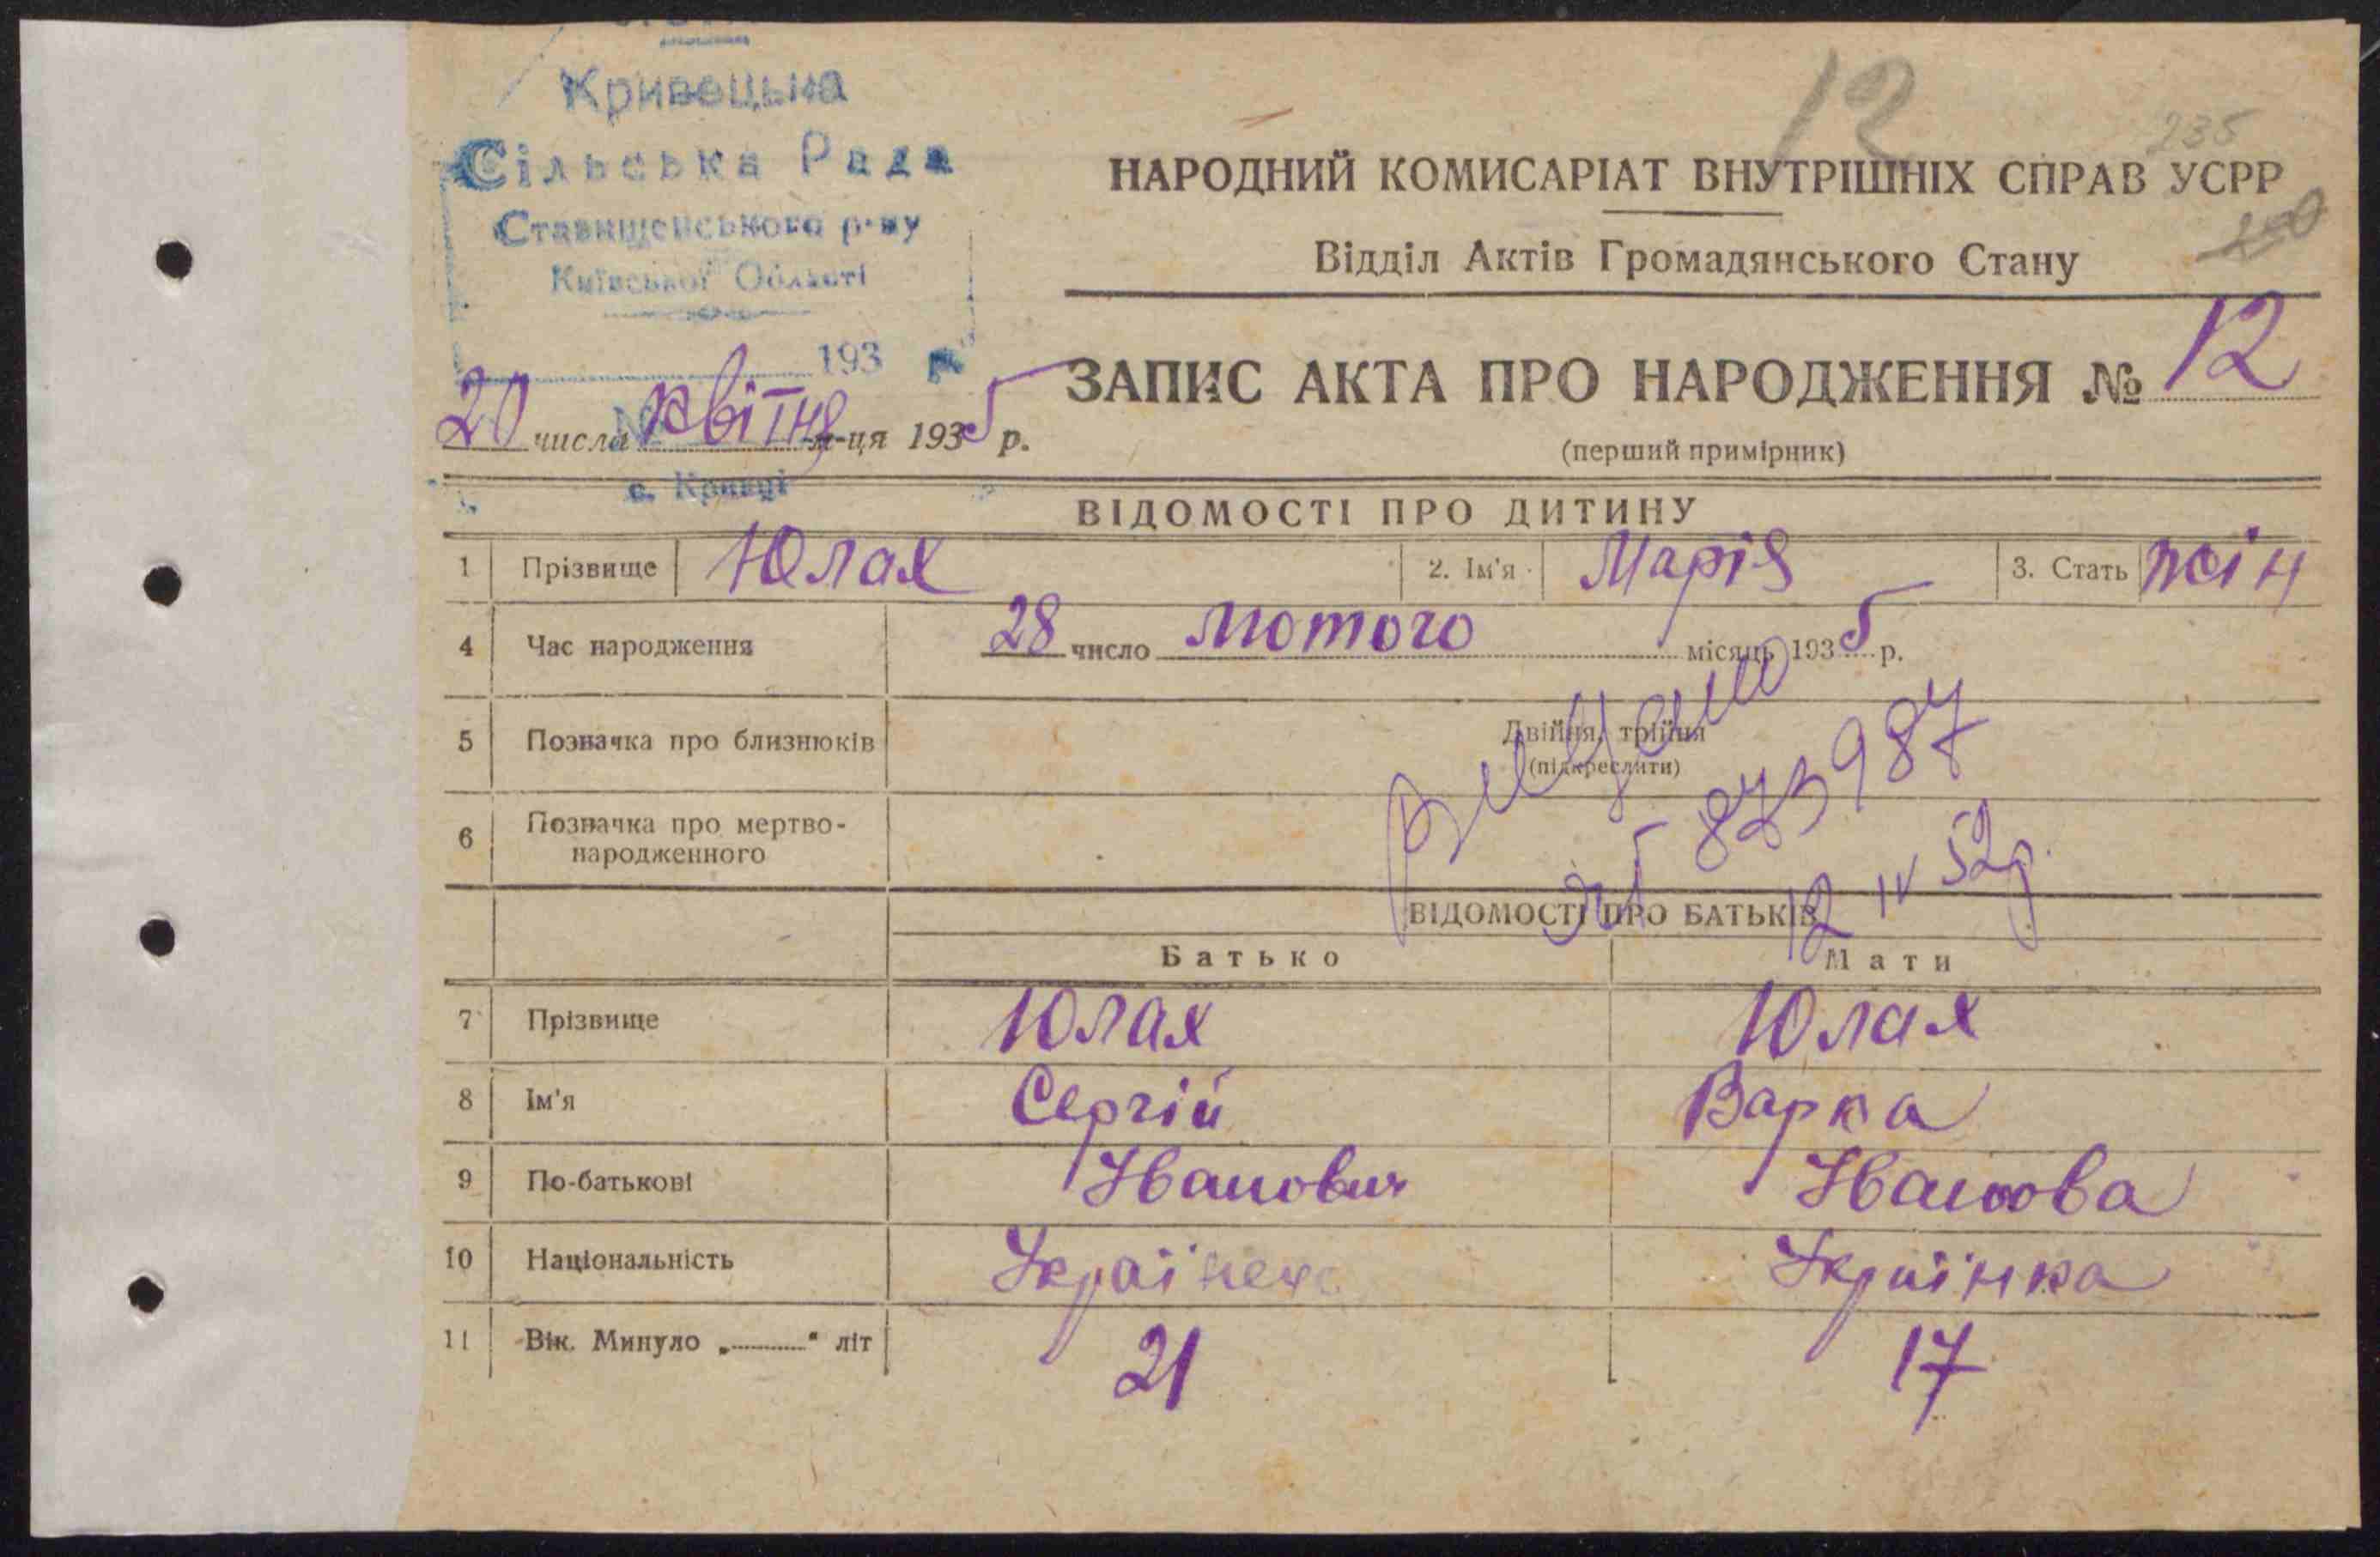 Кривецька
Сільська Рада
Ставищенського р-ну
Київської Області
193
с. Кривці
12
235
НАРОДНИЙ КОМИСАРІАТ ВНУТРІШНІХ СПРАВ УСРР
Відділ Актів Громадянського Стану
ЗАПИС АКТА ПРО НАРОДЖЕННЯ № 12
20 числа квітня м-ця 1935 р.
(перший примірник)
ВІДОМОСТІ ПРО ДИТИНУ
1 Прізвище Юлах 2. Ім'я Марія 3. Стать жін
4 Час народження 28 число Лютого місяць 1935 р.
5 Позначка про близнюків Двійня, трійня
(підкреслити)
6 Позначка про мертво-
народженного
873987
12 IV 52р.
ВІДОМОСТІ ПРО БАТЬКІВ
Батько Мати
7 Прізвище Юлах Юлах
8 Ім'я Сергій Варка
9 По-батькові Іванович Іванова
10 Національність Українец Українка
11 Вік. Минуло „ “ літ 21 17